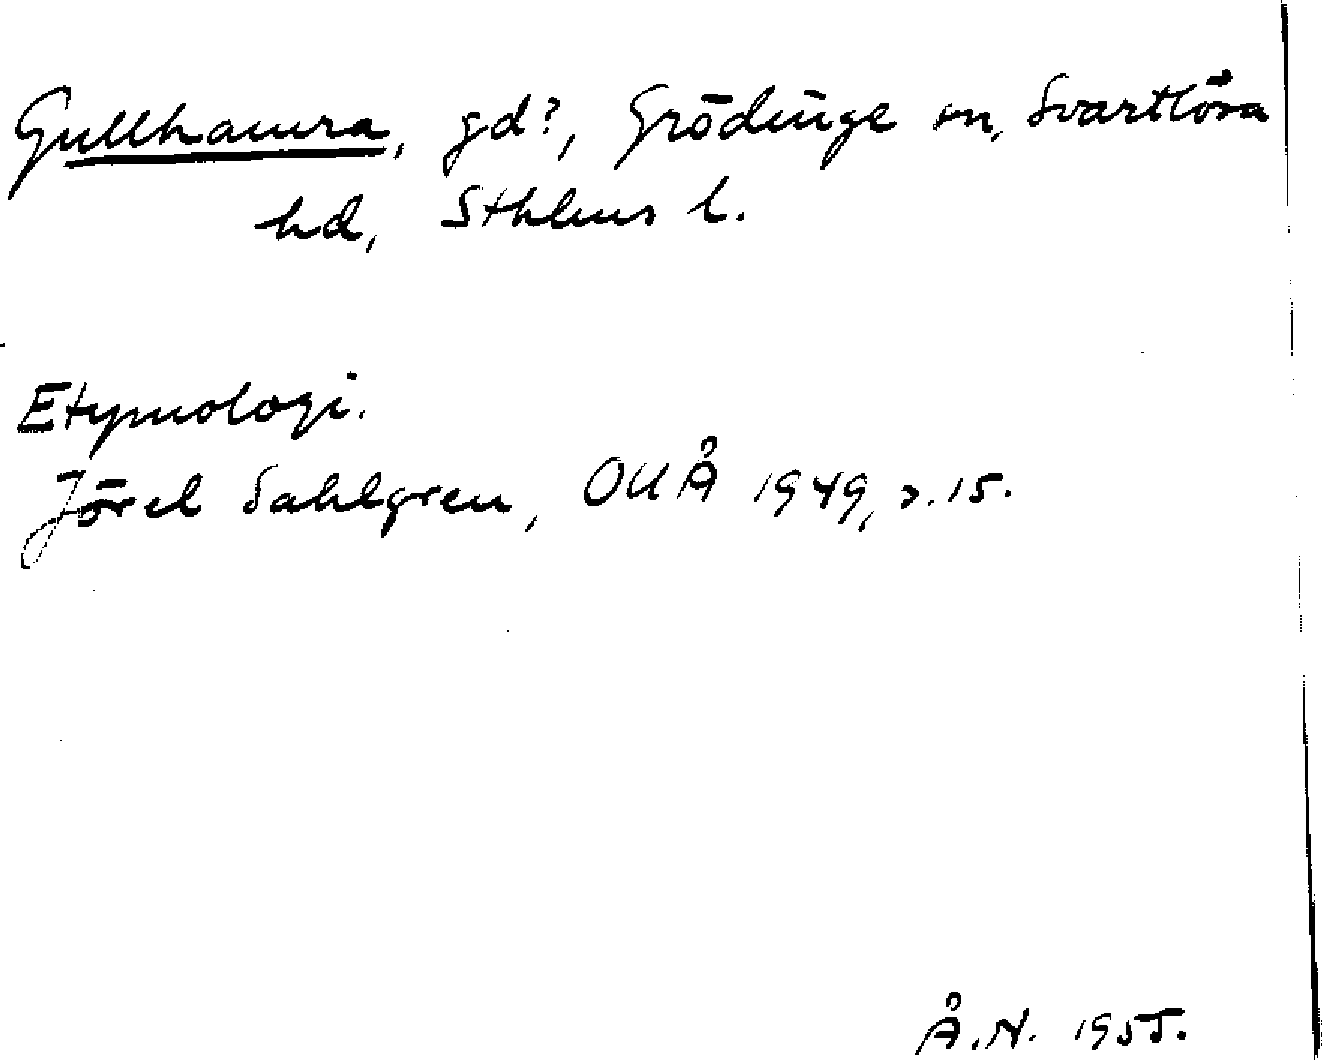 Gullhamra, gd?, Grödinge sn, Svartlösa
hd, Sthlms l.
Etymologi.
Jöran Sahlgren, OUÅ 1949, s. 15.
Å.N. 1955.